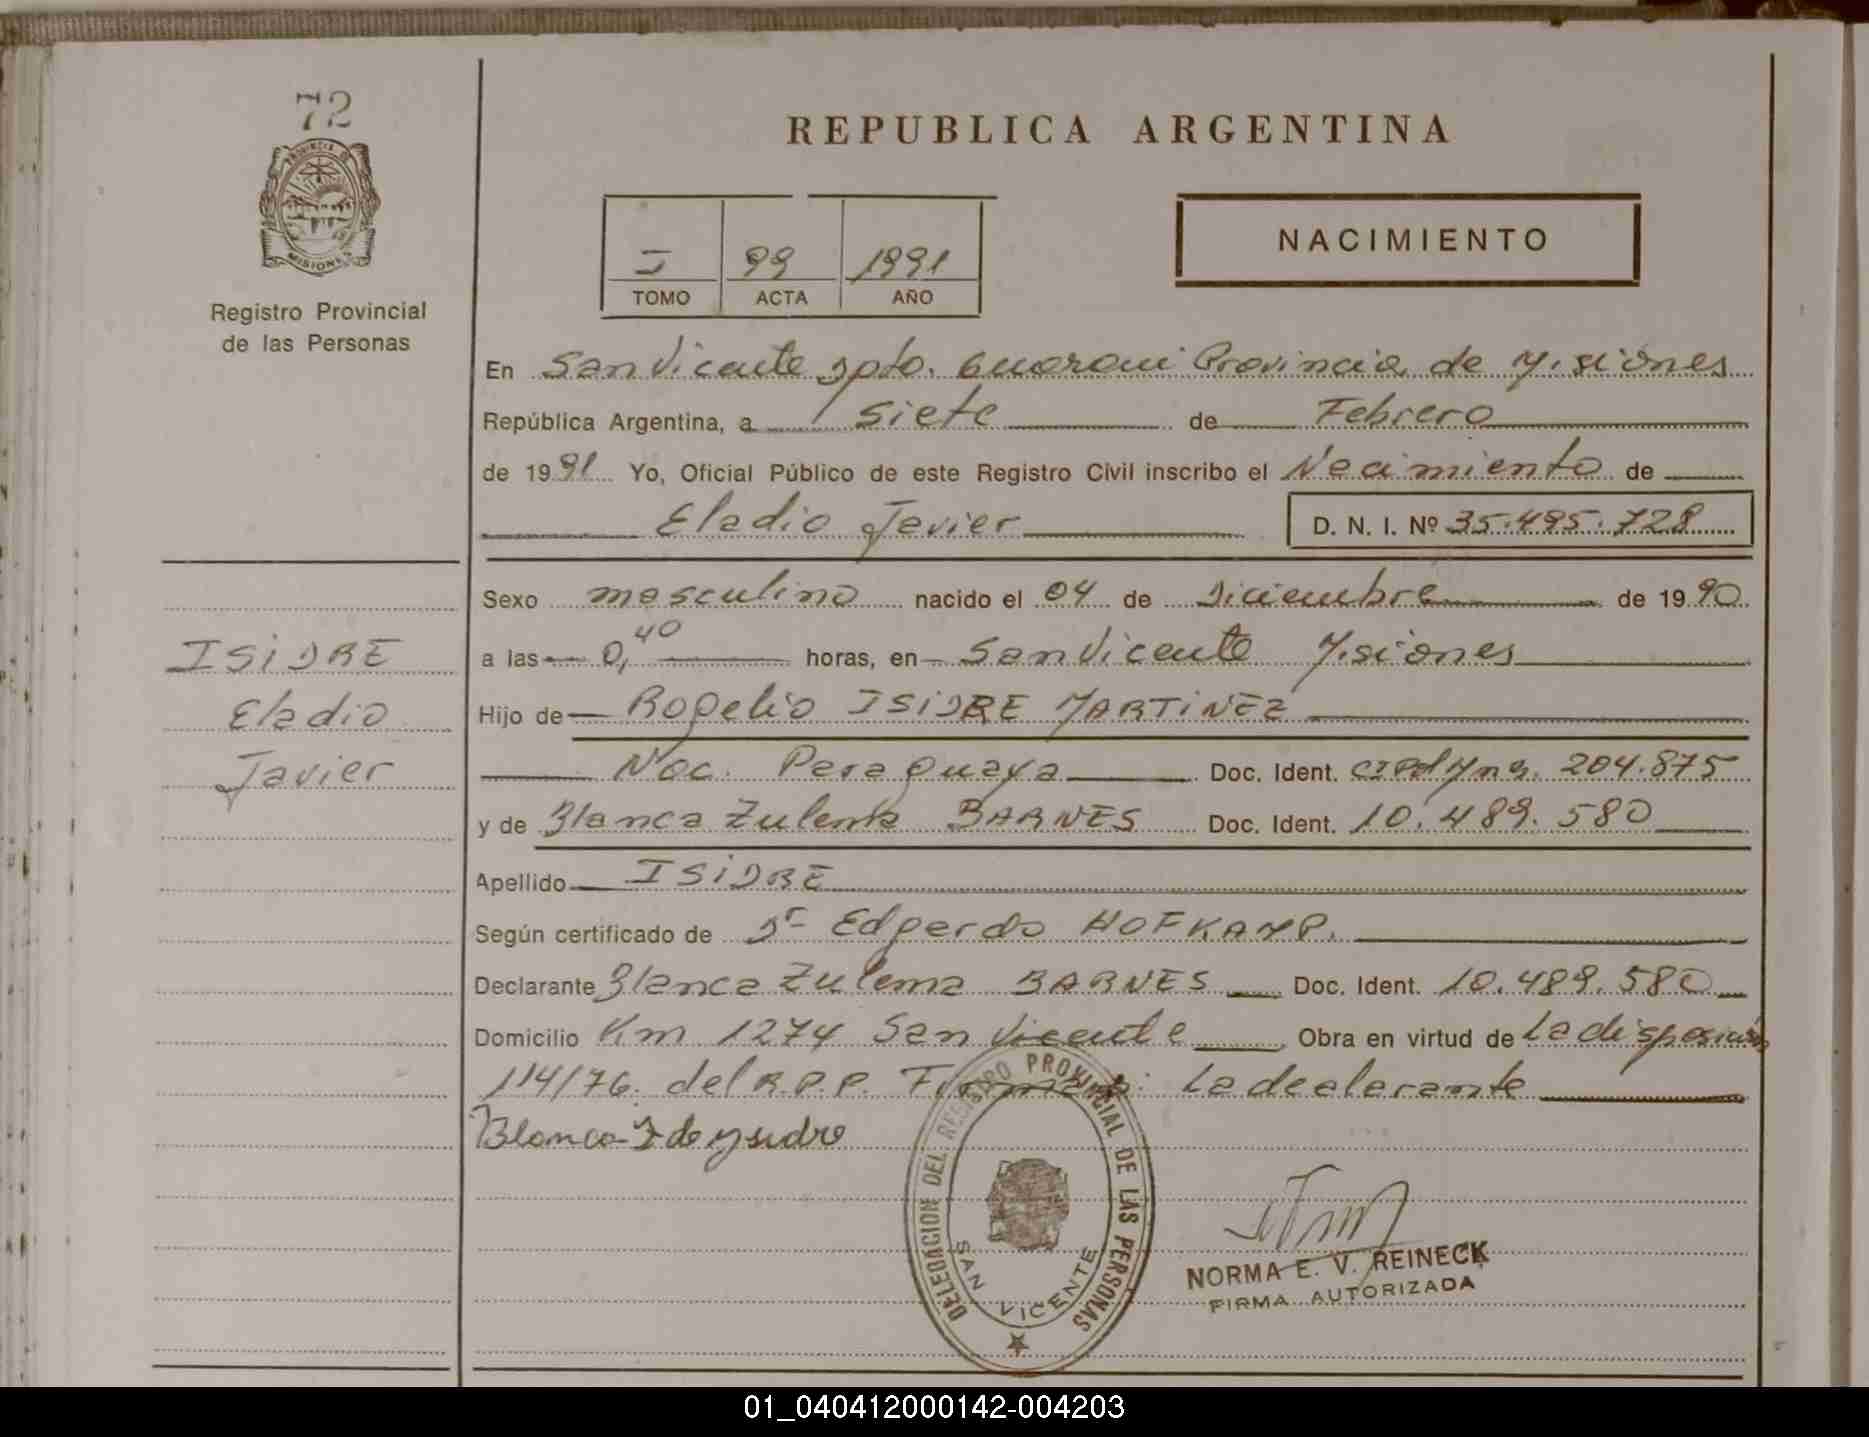 72
PROVINCIA DE
MISIONES
Registro Provincial
de las Personas
REPUBLICA ARGENTINA
I 99 1991
TOMO ACTA AÑO
NACIMIENTO
En San Vicente Dpto. Guarani Provincia de Misiones
República Argentina, a siete de Febrero
de 1991 Yo, Oficial Público de este Registro Civil inscribo el Nacimiento de
Eladio Javier D. N. I. Nº 35.495.728
Sexo masculino nacido el 04 de Diciembre de 1990
a las 0,40 horas, en San Vicente Misiones
ISIDRE
Eladio
Javier
Hijo de Rogelio ISIDRE MARTINEZ
Nac. Paraguaya Doc. Ident. 204.875
y de Blanca Zulema BARNES Doc. Ident. 10.489.580
Apellido ISIDRE
Según certificado de Dr Edgardo HOFKAMP.
Declarante Blanca Zulema BARNES Doc. Ident. 10.489.580
Domicilio Km 1274 San Vicente Obra en virtud de La disposición
114/76. del R.P.P. Firman: La declarante
Blanca Z de ysidre
DELEGACION DEL REGISTRO PROVINCIAL DE LAS PERSONAS
SAN VICENTE
NORMA E. V. REINECK
FIRMA AUTORIZADA
01_040412000142-004203